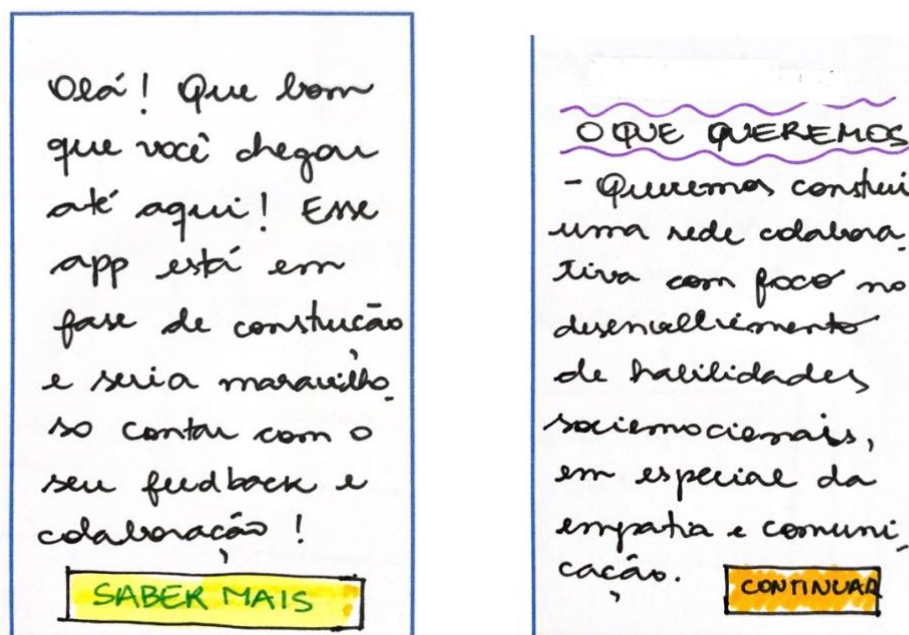 Olá! Que bom
que você chegou
até aqui! Esse
app está em
fase de construção
e seria maravilho-
so contar com o
seu feedback e
colaboração!
SABER MAIS
O QUE QUEREMOS
- Queremos construi
uma rede colabora-
tiva com foco no
desenvolvimento
de habilidades
sociemocionais,
em especial da
empatia e comuni-
cação.
CONTINUAR